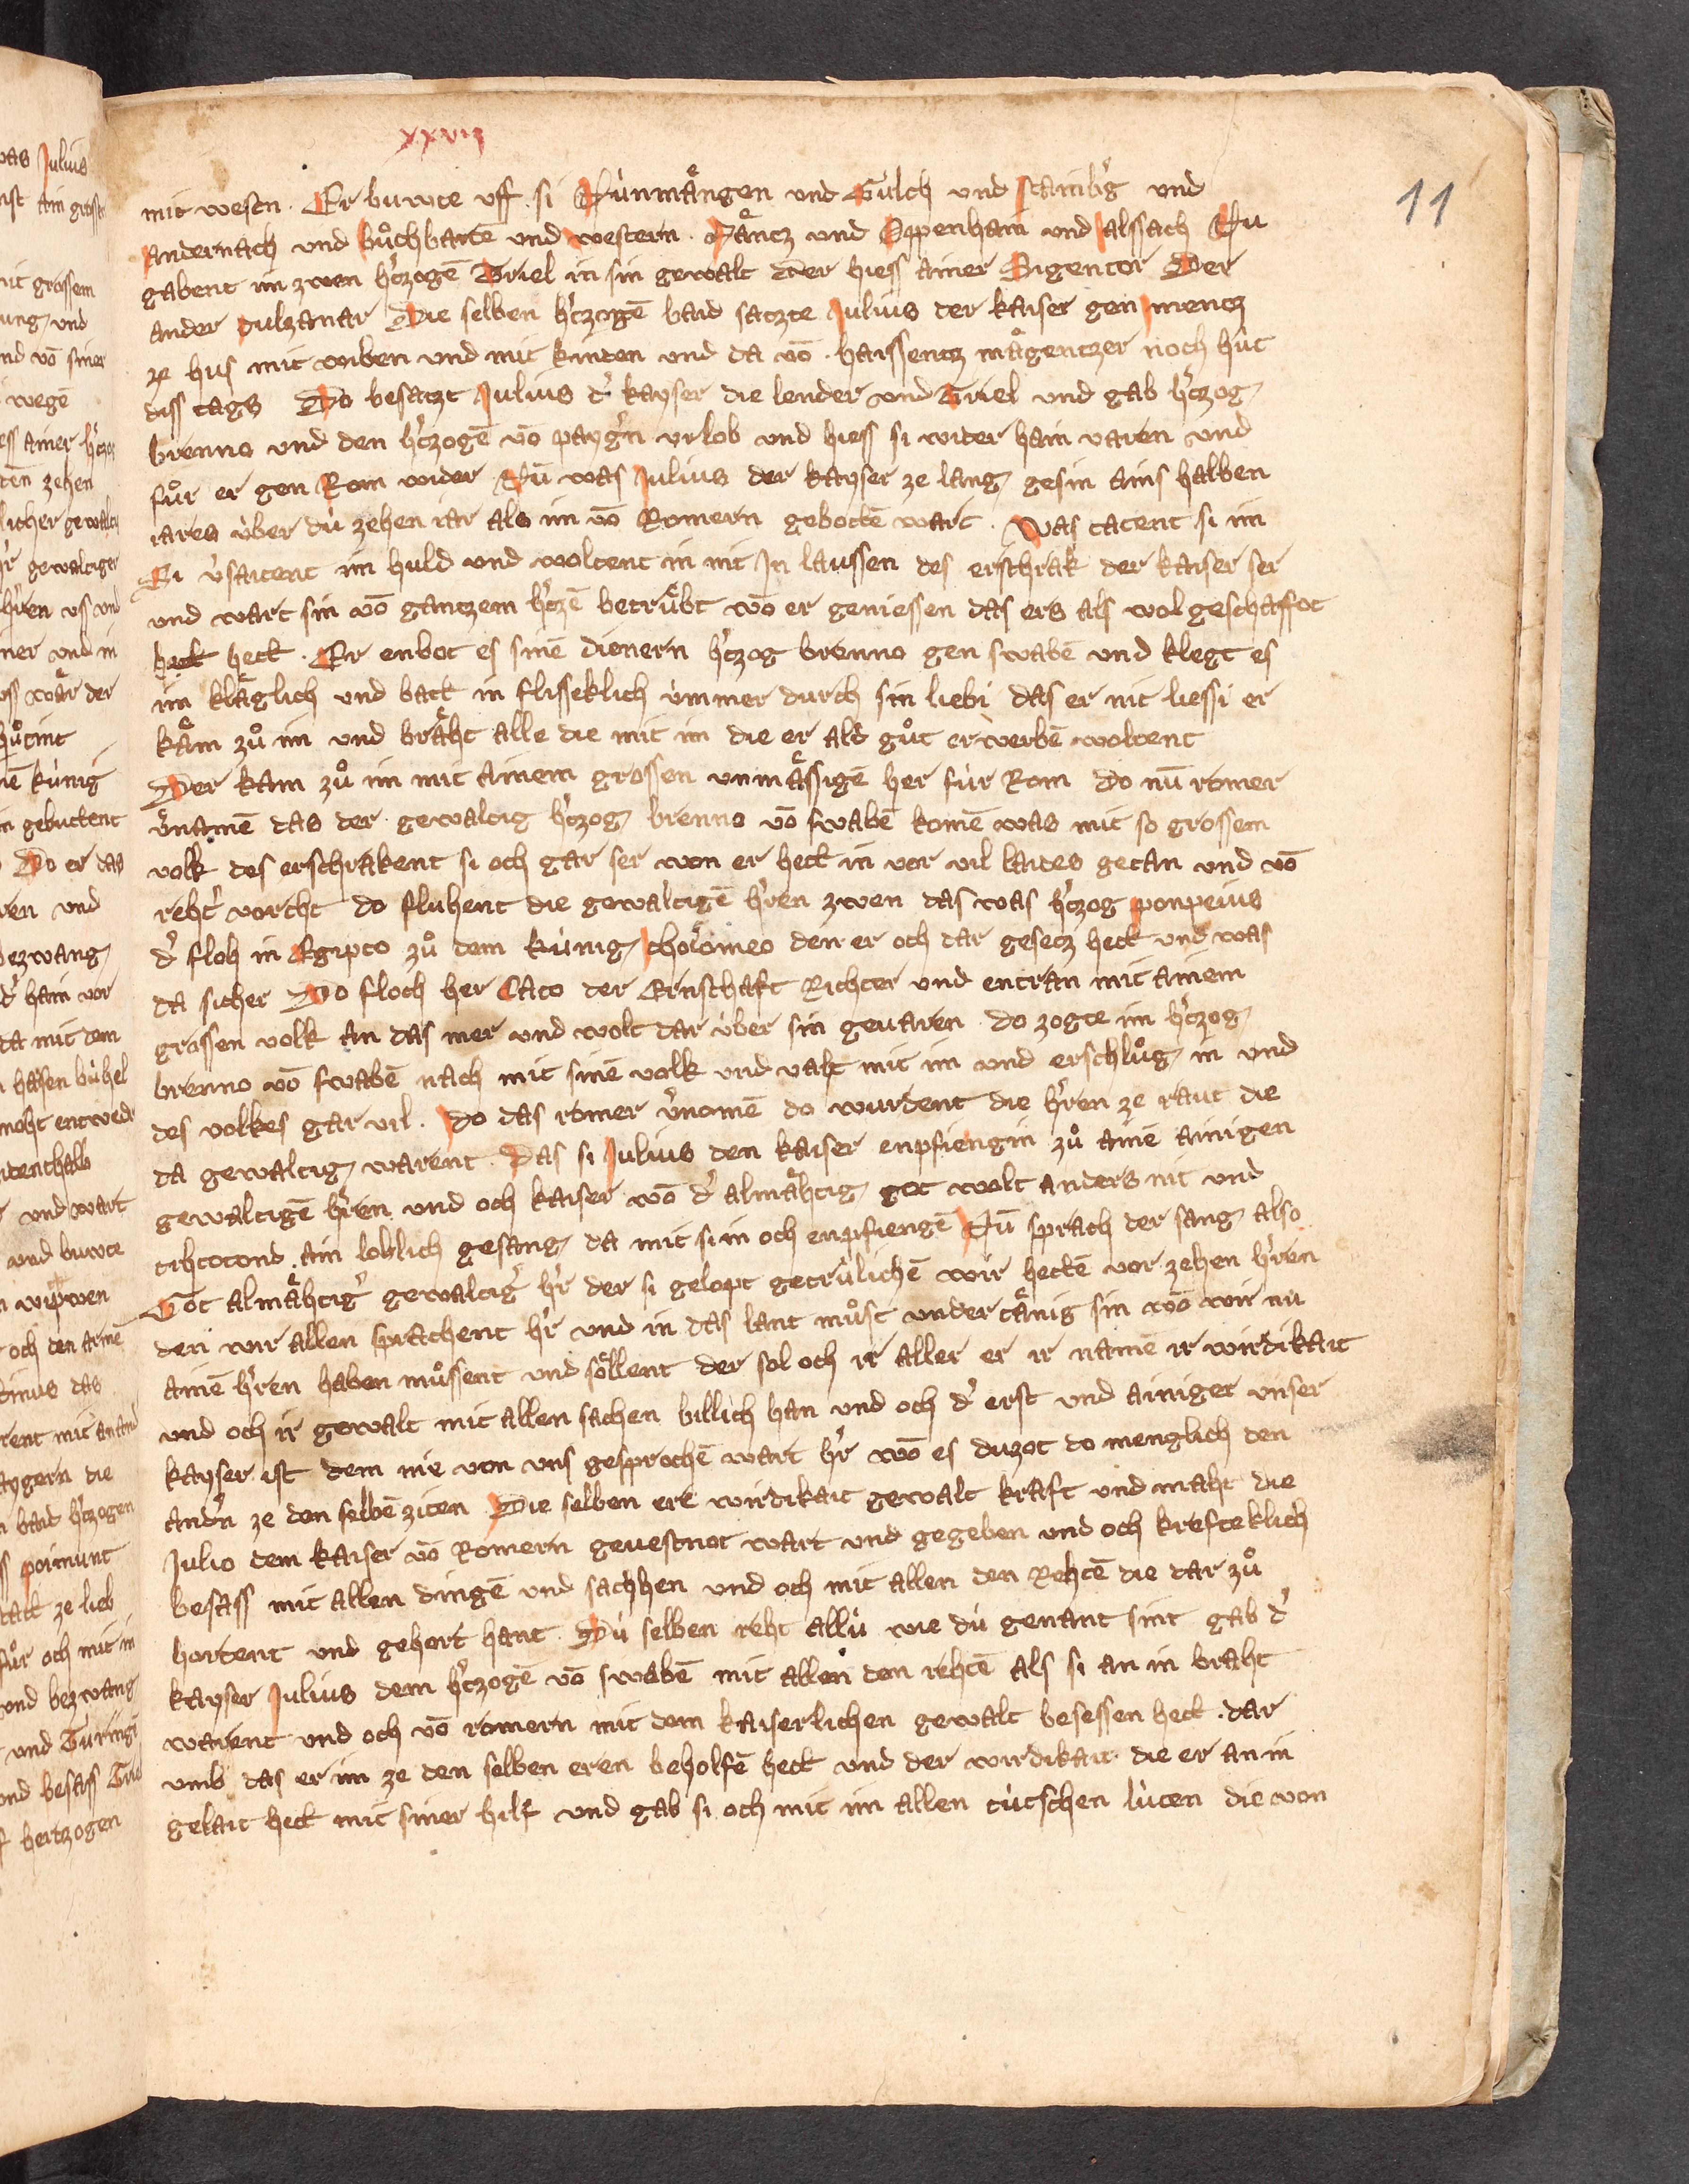 xxvii
11
mit wesen . Er buwte uff si Nu̍nmaͤngen und Gu̍lch und stainb̓g und
andernach und buͦchbartē und western . Maͤncz und Oppenhain und alssach Nu
gabent im zwen h̓czogē Triel in sin gewalt Der hiess ainer Sigentor Der
ander pulzanar Die selben h̓czogē baid saczte Julius der kaiser gen mencz
ze hus mit wiben und mit kinden und da vō haissentz maͤgentzer noch hu̍t
diss tags Do besaczt Julius d̓ kayser die lender und Triel und gab h̓czog
brenno und den h̓czogē vō payg̓n vrlob und hiess si wider hain varen und
fuͦr er gen Rom wider Nū was Julius der kayser ze lang gesin ains halben
iares u̍ber du̍ zehen iar als im vō Romern gebottē wart . Was tatent si im
Si v̓saitent im huld und woltent in nit In laussen des erschrak der kaiser ser
und wart sin vō gantzem h̓czē betruͤbt wō er geniessen das ers als wol geschaffot
hett hett . Er enbot es sinē dienern h̓czog brenno gen swabē und klegt es
im klaͤglich und batt in flisseklich u̍mmer durch sin liebi das er nit liessi er
kaͤm zuͦ im und braͤht alle die mit im die er ald guͦt erwerbē woltent
Der kam zuͦ im mit ainem grossen unmaͤssigē her fu̍r Rom Do nū romer
v̓namē das der gewaltig h̓czog brenno vō swabē komē was mit so grossem
volk des erschrakent si och gar ser won er hett in vor vil laides getan und vō
reht̓ vorcht do fluhent die gewaltigē h̓ren zwen das was h̓czog ponpeius
d̓ floh in Egipto zuͦ dem ku̍nig tholomeo den er och dar gesecz hett und was
da sicher Do floch her Cato der Ernschaft Richter und entran mit ainem
grossen volk an das mer und wolt dar u̍ber sin gevaren do zogte im h̓czog
brenno vō swabē nach mit sinē volk und vaht mit im und erschluͦg in und
des volkes gar vil . Do das romer v̓nomē do wurdent die h̓ren ze raut die
da gewaltig warent . Das si Julius den kaiser enpfiengin zuͦ ainē ainigen
gewaltigē h̓ren und och kaiser wō d̓ almaͤhtig got wolt anders nit und
tihtotond ain loblich gesang da mit si in och enpfiengē Nū sprach der sang also
Got almaͤhtig̓ gewaltig̓ h̓r der si gelopt getru̍lichē wir hettē vor zehen h̓ren
den wir allen sprachent h̓r und in das lant muͦst undertaͤnig sin wō wir nu
ainē h̓ren haben muͦssent und soͤllent der sol och ir aller er ir namē ir wirdikait
und och ir gewalt mit allen sachen billich han und och d̓ erst und ainiger unser
kayser ist dem nie von uns gesprochē wart h̓r wō es duzot do menglich den
and̓n ze den selbē ziten Die selben ere wirdikait gewalt kraft und maht die
Julio dem kaiser vō Romern gevestnot wart und gegeben und och krefteklich
besass mit allen dingē und sachhen und och mit allen den Rehtē die dar zuͦ
hortent und gehort hant . Du̍ selben reht allu̍ wie du̍ genant sint gab d̓
kayser Julius dem h̓czogē vō swabē mit allen den rehtē als si an in braht
warent und och vō romern mit dem kaiserlichen gewalt besessen hett . dar
umb das er im ze den selben eren beholfē hett und der wirdikait die er an in
gelait hett mit siner hilf und gab si och mit im allen tu̍tschen lu̍ten die von